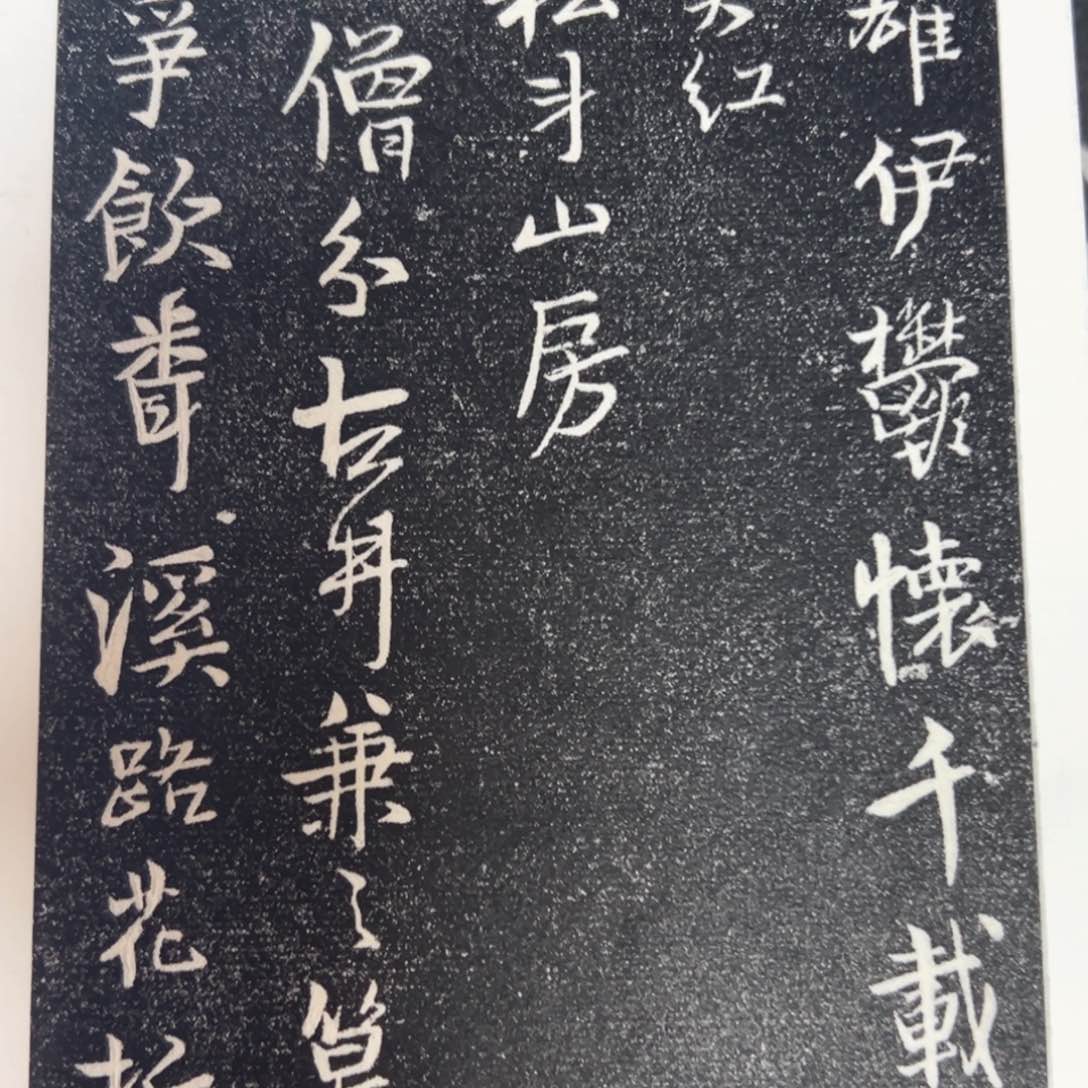 雄伊鬱懷千載
紅
松斗山房
僧分古井兼之
飲聾溪路花